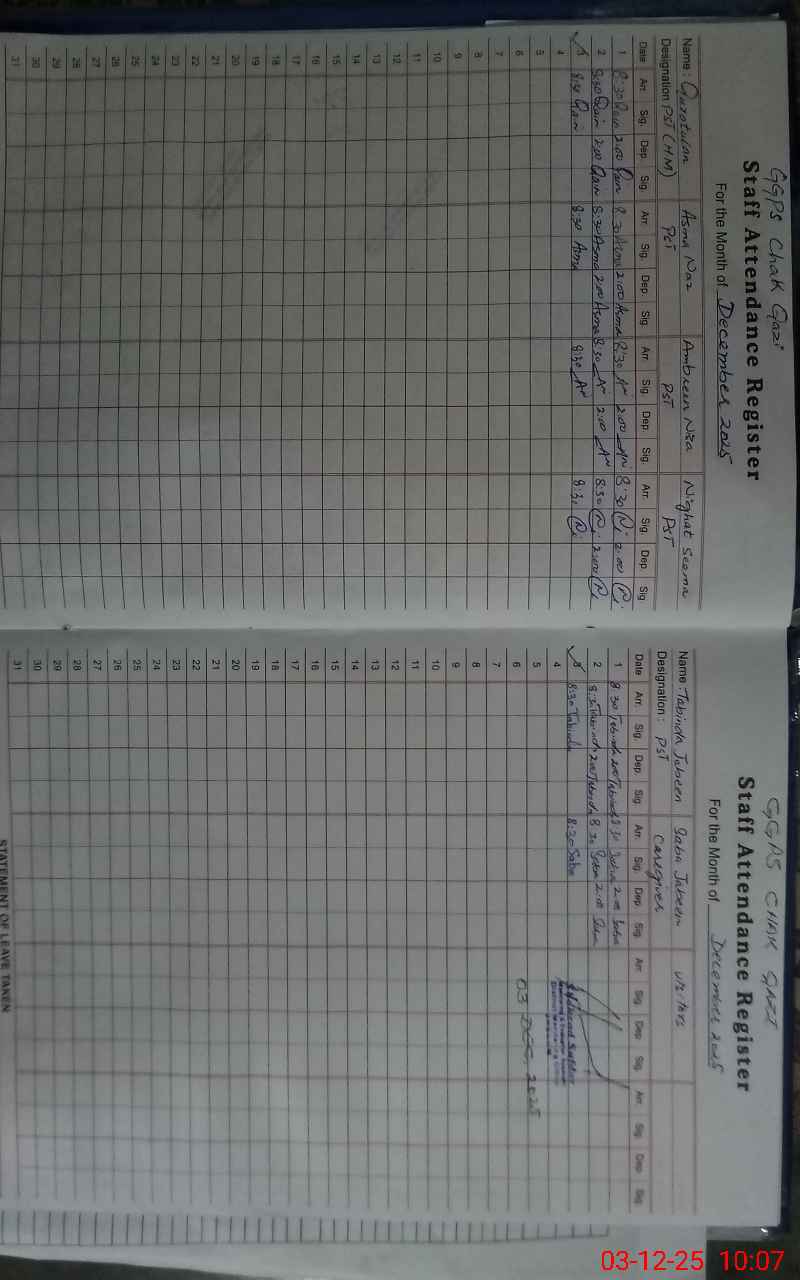 GGPS Chak Qazi
Staff Attendance Register
For the Month of December 2025
Name : Quratulan Asma Naz Ambreen Nisa Nighat Seema
Designation PST (HM) PST PST PST
Date Arr. Sig. Dep. Sig. Arr. Sig. Dep Sig. Arr. Sig. Dep Sig. Arr. Sig. Dep Sig
1 8:30 Qain 2:00 Qain 8:30 Asma 2:00 Asma 8:30 AN 2:00 AN 8:30 2:00
2 8:30 Qain 2:00 Qain 8:30 Asma 2:00 Asma 8:30 AN 2:00 AN 8:30 2:00
3 8:30 Qain 8:30 Asma 8:30 AN 8:30
4
5
6
7
8
9
10
11
12
13
14
15
16
17
18
19
20
21
22
23
24
25
26
27
28
29
30
31
GGPS CHAK QAZI
Staff Attendance Register
For the Month of December 2025
Name : Tabinda Jabeen Saba Jabeen Visitors
Designation : PST Caregiver
Date Arr. Sig. Dep. Sig. Arr. Sig. Dep. Sig. Arr. Sig. Dep Sig. Arr. Sig. Dep Sig
1 8:30 Tabinda 2:00 Tabinda 8:30 Saba 2:00 Saba
2 8:30 Tabinda 2:00 Tabinda 8:30 Saba 2:00 Saba
3 8:30 Tabinda 8:30 Saba
4
5
03 DEC 2025
6
7
8
9
10
11
12
13
14
15
16
17
18
19
20
21
22
23
24
25
26
27
28
29
30
31
STATEMENT OF LEAVE TAKEN
03-12-25 10:07